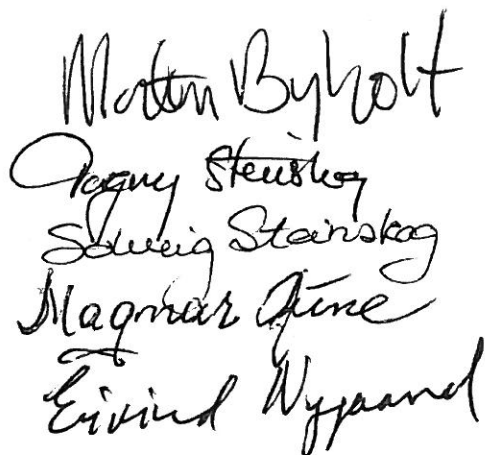 Morten Byholt
Dagny Steinskog
Solveig Steinskog
Magnar
Eivind Nygaard